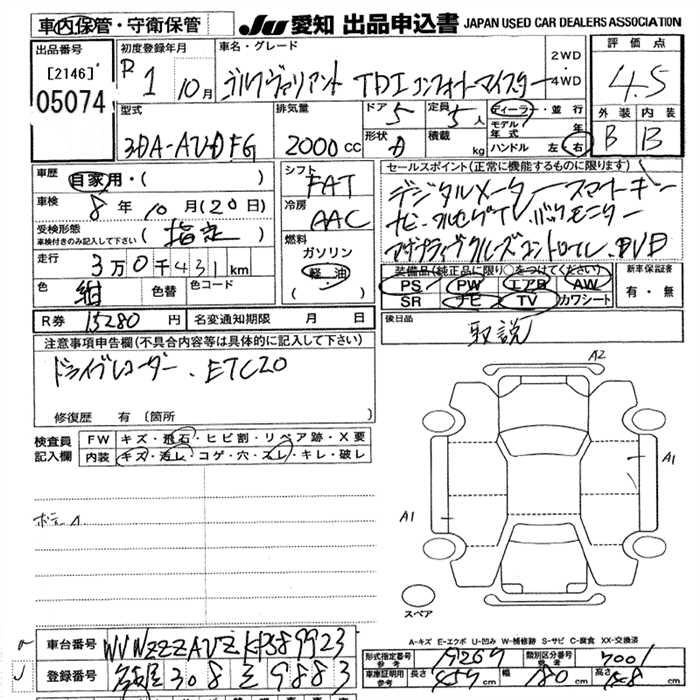 車内保管・守衛保管
JU 愛知 出品申込書 JAPAN USED CAR DEALERS ASSOCIATION
出品番号
[2146]
05074
初度登録年月
R1 10月
車名・グレード
ゴルフヴァリアント TDIコンフォートマイスター
2WD
4WD
評価点
4.5
型式
3DA-AUDFG
排気量
2000cc
ドア 5
定員 5人
ディーラー・並行
モデル年式 年
形状
積載 kg
ハンドル 左 右
外装 内装
B B
車歴
自家用・( )
車検
8年10月(20日)
受検形態
車検付きのみ記入して下さい
(指定)
走行
3万0千431km
色 紺
色替
色コード
シフト
FAT
冷房
AAC
燃料
ガソリン
軽油
( ・ )
セールスポイント(正常に機能するものに限ります)
デジタルメーター スマートキー
ナビ・フルセグTV バックモニター
アダプティブクルーズコントロール・DVD
装備品(純正品に限り○をつけてください)
PS PW エアB AW
SR ナビ TV カワシート
新車保証書
有・無
R券 15280円
名変通知期限 月 日
後日品
取説
注意事項申告欄(不具合内容等は具体的に記入して下さい)
ドライブレコーダー・ETC2.0
修復歴 有〔箇所
検査員
記入欄
FW キズ・飛石・ヒビ割・リペア跡・X要
内装 キズ・汚レ・コゲ・穴・スレ・キレ・破レ
A2
A1
A1
スペア
A-キズ E-エクボ U-凹み W-補修跡 S-サビ C-腐食 XX-交換済
車台番号 WVWZZZAUZKP389923
登録番号 名古屋 308 9883
形式指定番号 参考 19267
類別区分番号 参考 7001
車庫証明用 参考
長さ 459 cm
幅 180 cm
高さ 148 cm